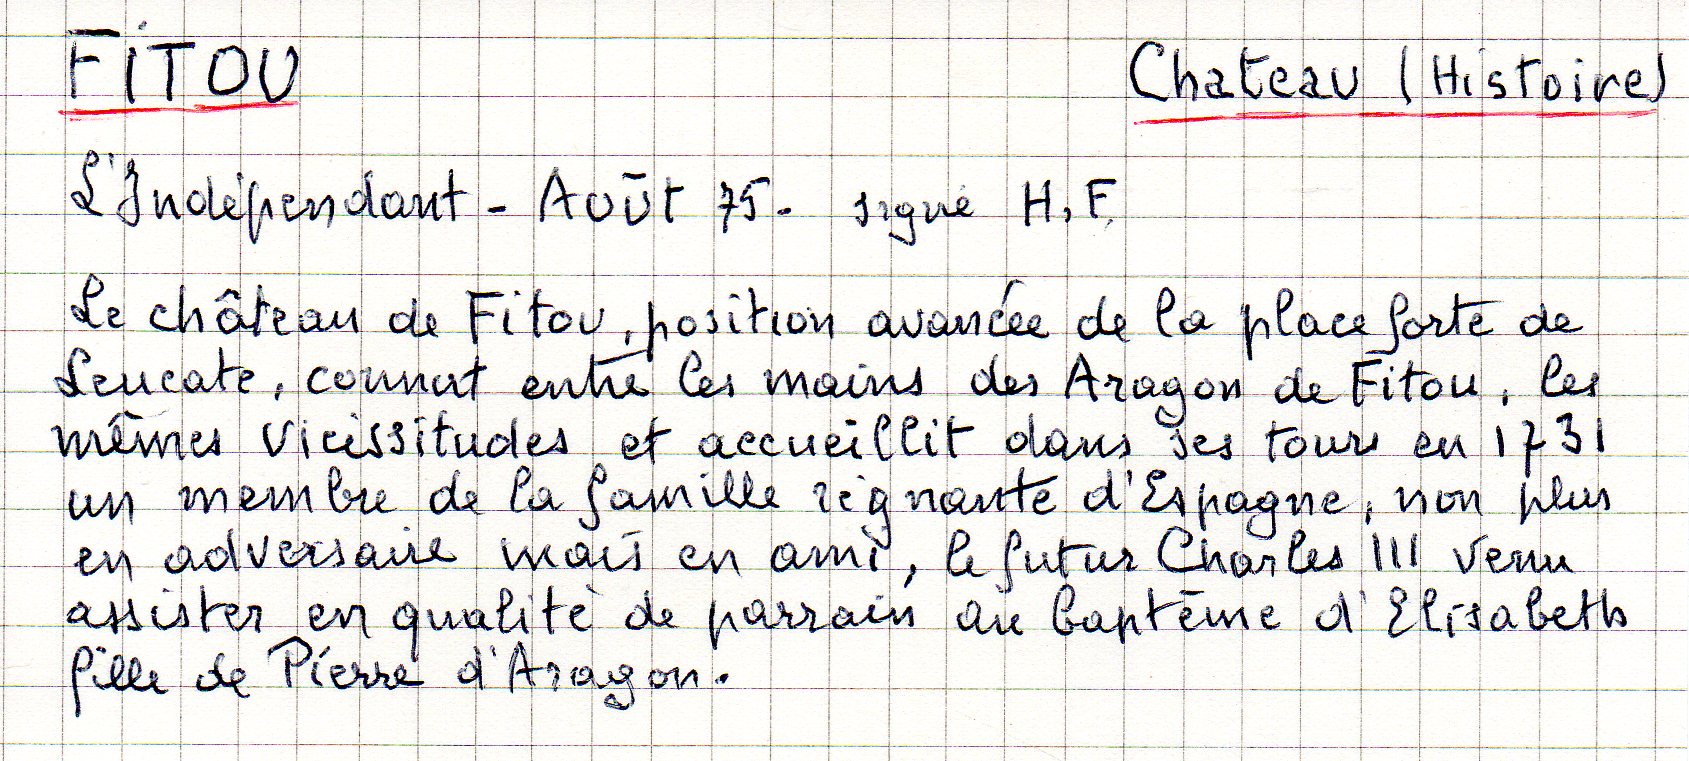 FITOU Chateau (Histoire)
L'Indépendant - Août 75 - signé H, F.
Le château de Fitou, position avancée de la place forte de
Leucate, connut entre les mains des Aragon de Fitou, les
mêmes vicissitudes et accueillit dans ses tours en 1731
un membre de la famille régnante d'Espagne, non plus
en adversaire mais en ami, le futur Charles III venu
assister en qualité de parrain au baptême d'Elisabeth
fille de Pierre d'Aragon.